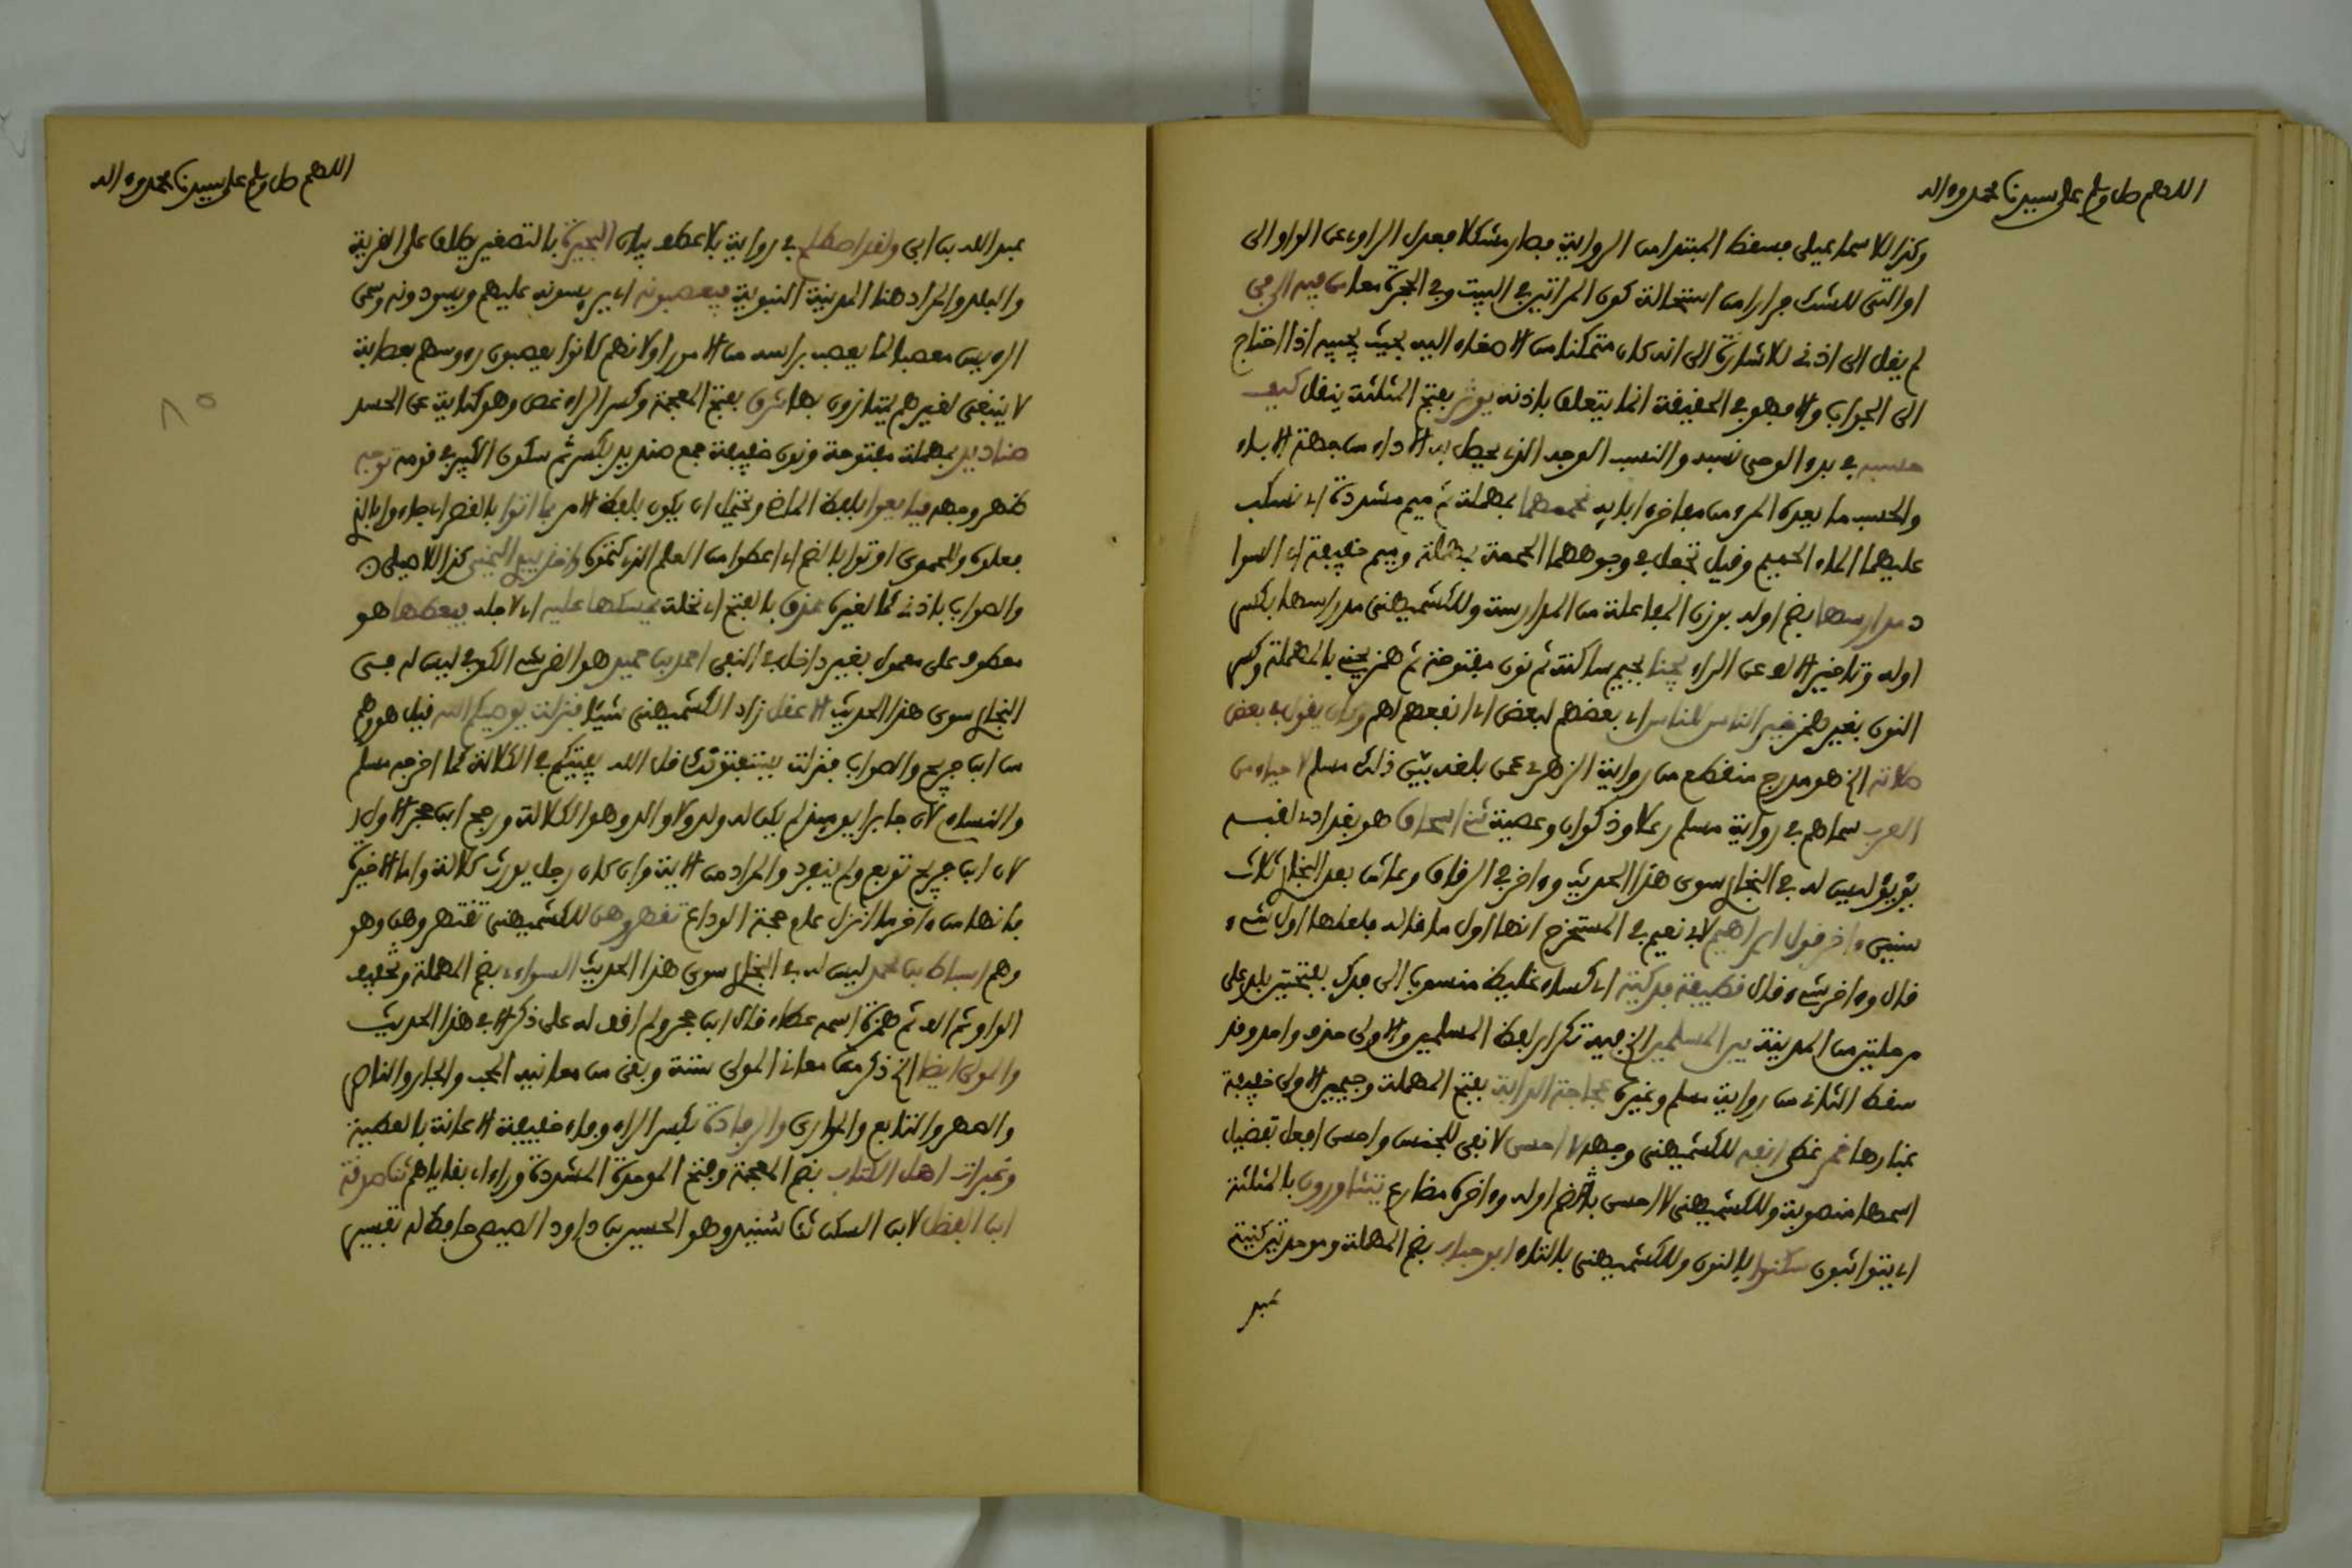 اللهم صل وسلم على سيدنا محمد وءاله
وكذا للاسماعيلي فسقط المبتدا من الرواية فصار مشكلا فعدل الراوي عن الواو الى
او التي للشك فرارا من استحالة كون المراتين في البيت وفي الحجرة معا من فيه الى في
لم يقل الى اذني للاشارة الى انه كان متمكنا من الاصغاء اليه بحيث يجيبه اذا احتاج
الى الجواب والا فهو في الحقيقة انما يتعلق باذنه يوثر بفتح المثلثة ينقل كيف
حسبه في بدء الوحي نسبه والنسب الوجه الذي يحصل به الاداء من جهة الاباء
والحسب ما يعده المرء من مفاخر ابايه نحممهما بمهملة ثم ميم مشددة اي نسكب
عليهما الماء الحميم وقيل نجعل في وجوههما الحممة بمهملة وميم خفيفة اي السواد
مدارسها بضم اوله بوزن المفاعلة من المدارسة وللكشميهني مدراسها بكسر
اوله وتاخير الالف عن الراء يجنا بجيم ساكنة ثم نون مفتوحة ثم همز يحنى بالمهملة وكسر
النون بغير همز خير الناس للناس اي بعضهم لبعض اي انفعهم لهم وكان يقول في بعض
صلاته الخ هو مدرج منقطع من رواية الزهري عمن بلغه بين ذلك مسلم لاحياء من
العرب سماهم في رواية مسلم رعلا وذكوان وعصية ثنا اسحاق هو بغدادي لقبه
يؤيؤ ليس له في البخاري سوى هذا الحديث وءاخر في الرقاق وعاش بعد البخاري ثلاث
سنين ءاخر قول ابراهيم لابي نعيم في المستخرج انها اول ما قال فلعلها اول شيء
قال وءاخر شيء قال قطيفة فدكية اي كساء غليظ منسوبا الى فدك بفتحتين بلد على
مرحلتين من المدينة بين المسلمين الخ فيه تكرار لفظ المسلمين والاولى حذف واحد وقد
سقط الثاني من رواية مسلم وغيره عجاجة الدابة بفتح المهملة وجيمين الاولى خفيفة
غبارها خمر غطى انفه للكشميهني وجهه لا احسن لا نفي للجنس واحسن افعل تفضيل
اسمها منصوبة وللكشميهني لا احسن بضم اوله وءاخره مضارع يتثاورون بالمثلثة
اي يتواثبون سكنوا بالنون وللكشميهني بالتاء ابو حباب بضم المهملة وموحدتين كنية
عبد
اللهم صل وسلم على سيدنا محمد وءاله
عبد الله بن ابي ولقد اصطلح في رواية بلا عطف بيان البحيرة بالتصغير يطلق على القرية
والبلد والمراد هنا المدينة النبوية فيعصبونه اي يريسونه عليهم ويسودونه وسمي
الرييس معصبا لما يعصب براسه من الامور او لانهم كانوا يعصبون رءوسهم بعصابة
لا ينبغي لغيرهم يمتازون بها شرق بفتح المعجمة وكسر الراء غص وهو كناية عن الحسد
صناديد بمهملة مفتوحة ونون خفيفة جمع صنديد بكسر ثم سكون الكبير في قومه توجه
ظهر وجهه فبايعوا بلفظ الماضي ويحتمل ان يكون بلفظ الامر بما اتوا بالقصر اي جاءوا بالذي
فعلوه وللحموي اوتوا بالضم اي اعطوا من العلم الذي كتموه واخذ بيع اليمين كذا للاصيلي
والصواب باذني كما لغيره عذق بالفتح اي نخلة يمسكها عليه اي لاجله فيعضلها هو
معطوف على معمول بغير داخل في النفي احمد بن حميد هو القرشي الكوفي ليس له في
البخاري سوى هذا الحديث لا اعقل زاد الكشميهني شيئا فنزلت يوصيكم الله قيل هو وهم
من ابن جريج والصواب فنزلت يستفتونك قل الله يفتيكم في الكلالة كما اخرجه مسلم
والنساءي لان جابرا يوميذ لم يكن له ولد ولا والد وهو الكلالة ورجح ابن حجر الاول
لان ابن جريج توبع ولم ينفرد والمراد من الاية وان كان رجل يورث كلالة واما الاخيرة
فانها من ءاخر ما انزل عام حجة الوداع تعضلوهن للكشميهني تنتهروهن وهو
وهم اسباط بن محمد ليس له في البخاري سوى هذا الحديث السواءي بضم المهملة وتخفيف
الواو ثم الف ثم همزة اسمه عطاء قال ابن حجر ولم اقف له على ذكر الا في هذا الحديث
والمولى ايضا الخ ذكر من معاني المولى ستة وبقي من معانيه المحب والجار والناصر
والصهر والتابع والموازي والرفادة بكسر الراء وفاء خفيفة الاعانة بالعطية
وغبرات اهل الكتاب بضم المعجمة وفتح الموحدة المشددة وراء اي بقاياهم ثنا صدقة
ابن الفضل لابن السكن ثنا سنيد وهو الحسين بن داود المصيصي حافظ له تفسير